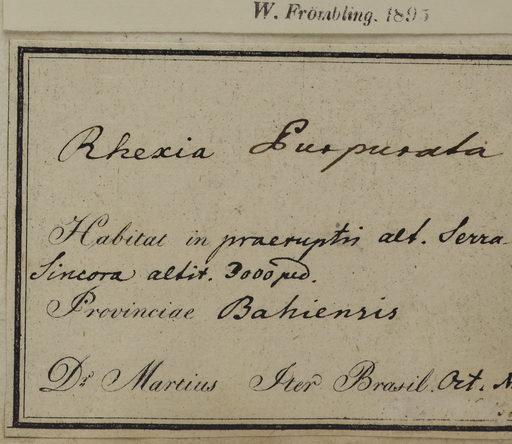 W. Frömbling. 1895
Rhexia Purpurata
Habitat in praeruptis alt. Serra
Sincora altit. 3000 ped.
Provinciae Bahiensis
Dr Martius Iter Brasil. Oct.